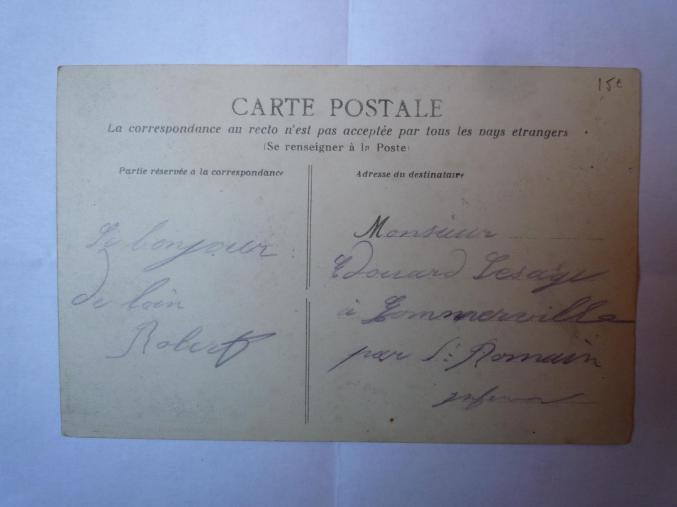 15€
CARTE POSTALE
La correspondance au recto n'est pas acceptée par tous les pays etrangers
(Se renseigner à la Poste)
Partie réservée à la correspondance
Adresse du destinataire
Le bonjour
de loin
Robert
Monsieur
Edouard Lesage
à Gommerville
par St Romain